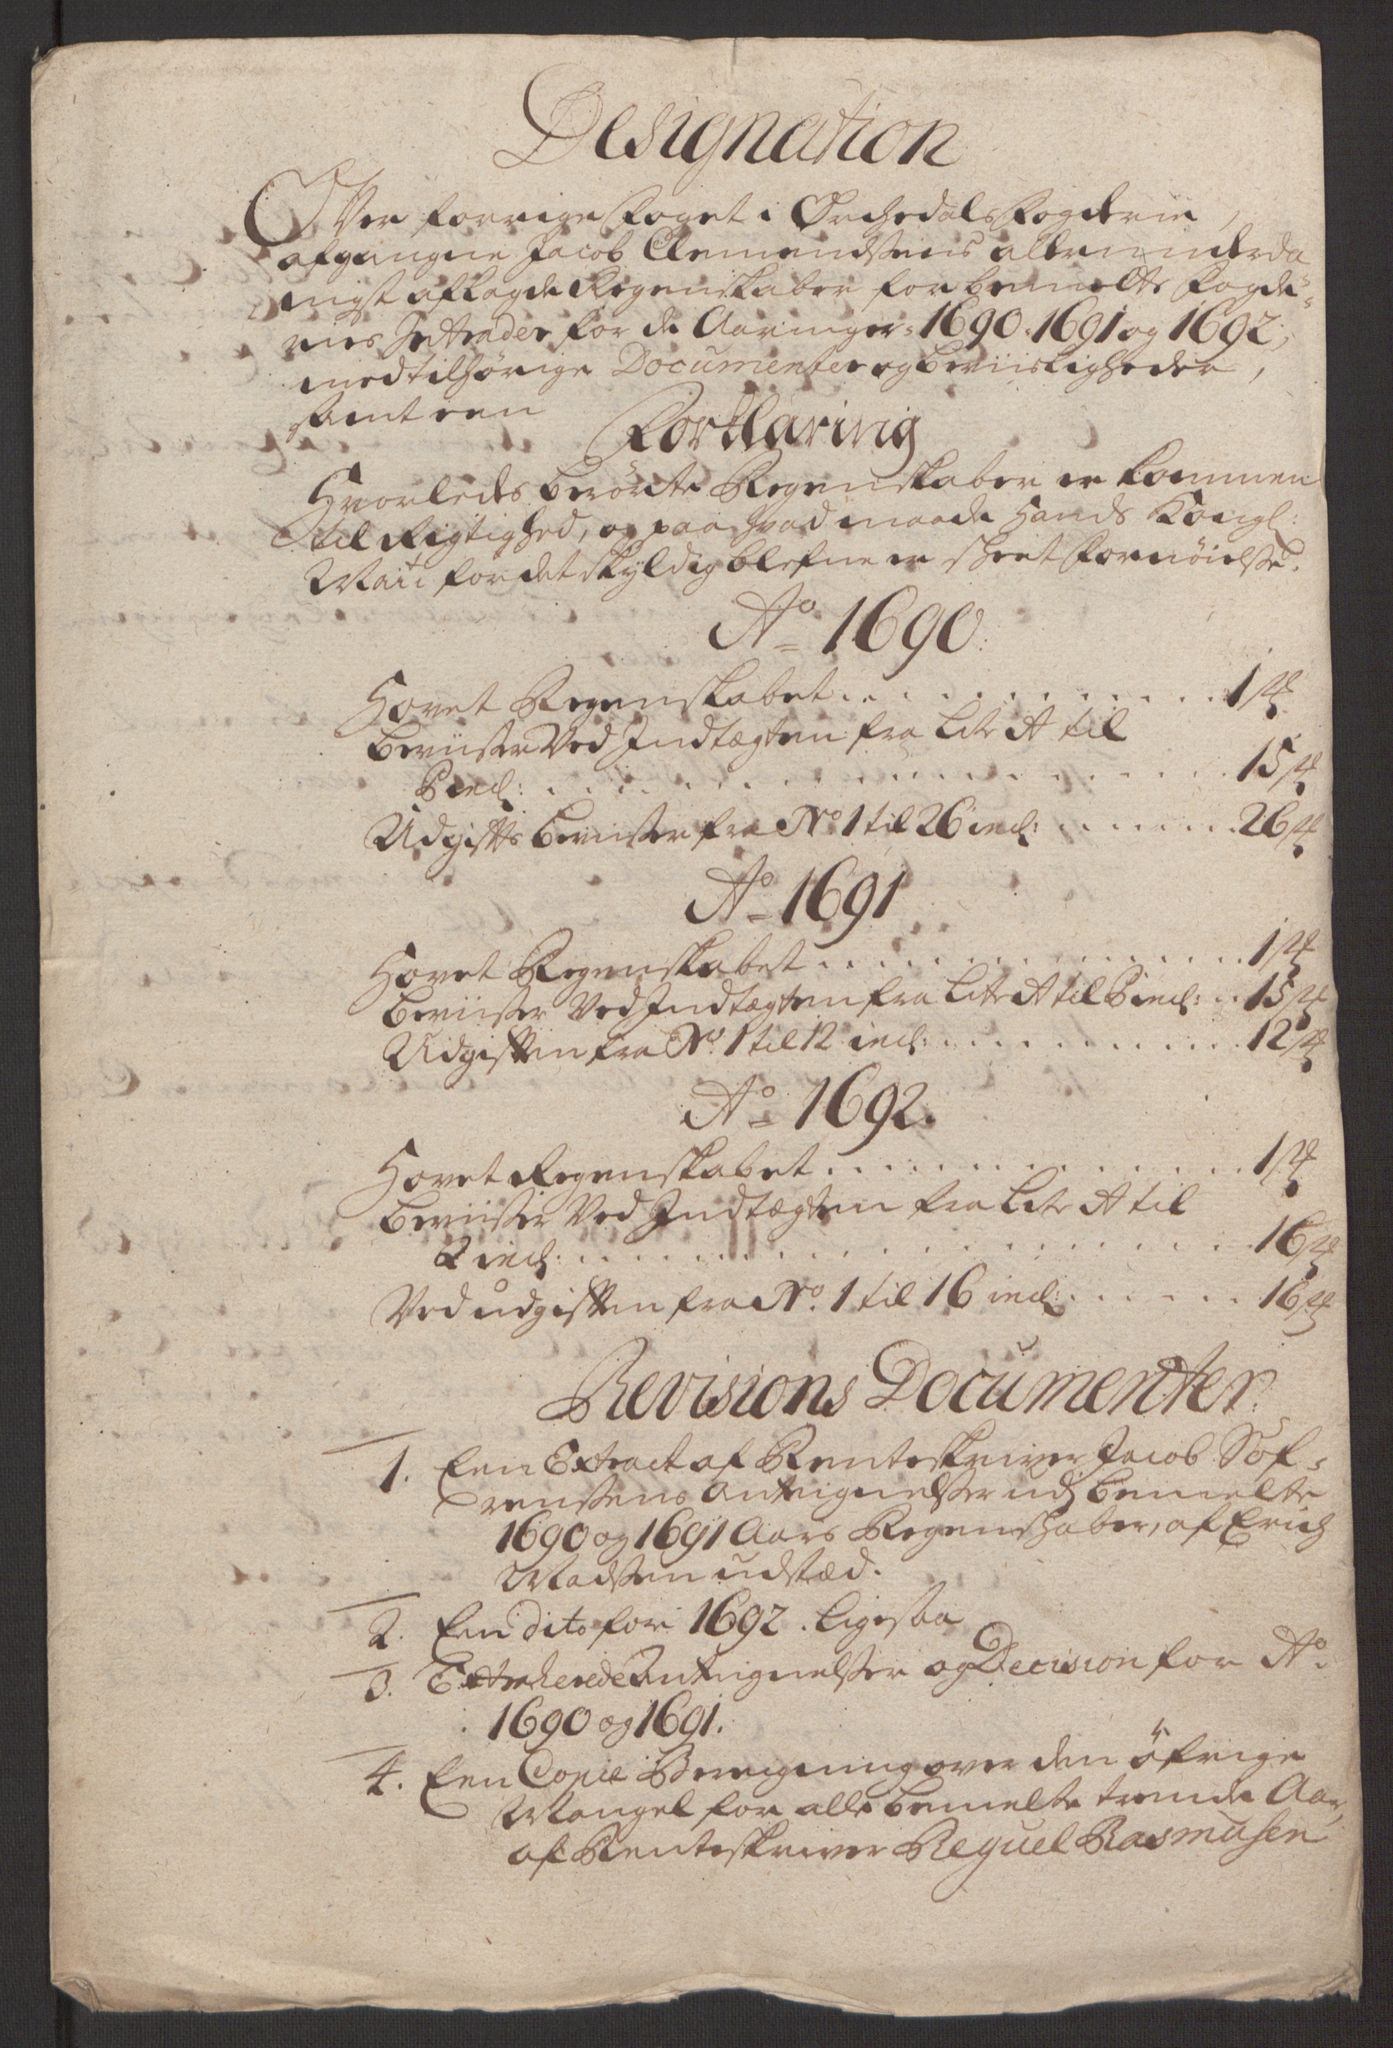 Designation
Ofver forrige Foget i Orchedals Fogderie,
afgangne Jacob Clemendsens allerunderda
nigst aflagde Regenskaber for bemelte Fogde-
ries Intrader for de Aaringer 1690. 1691 og 1692,
med tilhørige Documenter og beviisligheder,
samt een
Forklaring
Hvorledes berørte Regenskaber er kommen
til Rigtighed, og paa hvad maade Hands Kongl:
Maÿt for det skyldig blefne er skeet Fornøielse.
Ao 1690.
Hovet Regenskabet . . . . . . . . . . . . 1 st
beviiser Ved Indtægten fra Litr A til
P incl: . . . . . . . . . . . . . . . . 15 st
Udgifts beviiser fra No 1 til 26 incl: . . . . . . . 26 st
Ao 1691
Hovet Regenskabet . . . . . . . . . . . . . 1 st
beviiser Ved Indtægten fra Litr A til P incl: . . 15 st
Udgiften fra No. 1 til 12 incl: . . . . . . . . . . 12 st
Ao 1692.
Hovet Regenskabet . . . . . . . . . . . . . 1 st
beviiser Ved Indtægten fra Litr A til
Q incl: . . . . . . . . . . . . . . . . 16 st
Ved udgiften fra No. 1 til 16 incl: . . . . . . 16 st
Revisions Documenter.
1. Een Extract af Renteskriver Jacob Søf-
rensens antegnelser udj bemelte
1690 og 1691 Aars Regenskaber, af Erich
Madsen udstæd.
2. Een dito for 1692. ligesaa
3. Extraherede Antegnelser og Decision for Ao
1690 og 1691.
4. Een Copie Beregning over den öfrige
Mangel for alle bemelte trende Aar,
af Renteskriver Reguel Rasmusen